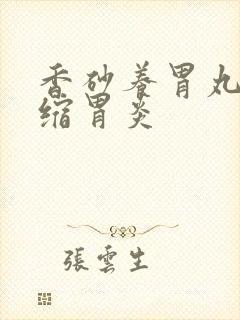 香砂養胃丸
縮胃炎
張雲生